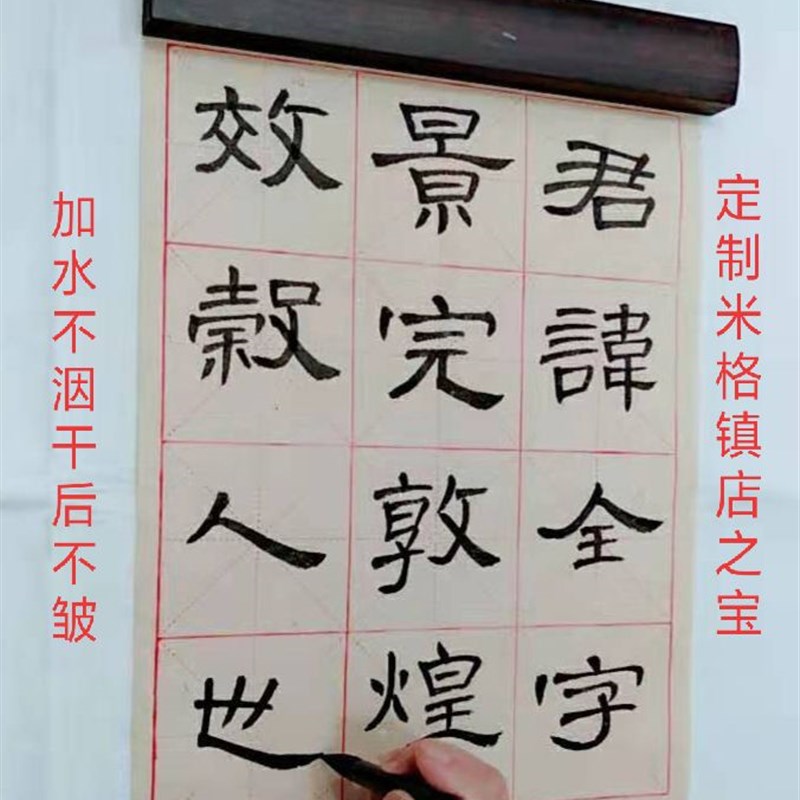 定制米格镇店之宝
君諱全字
景完敦煌
效穀人也
加水不洇干后不皱